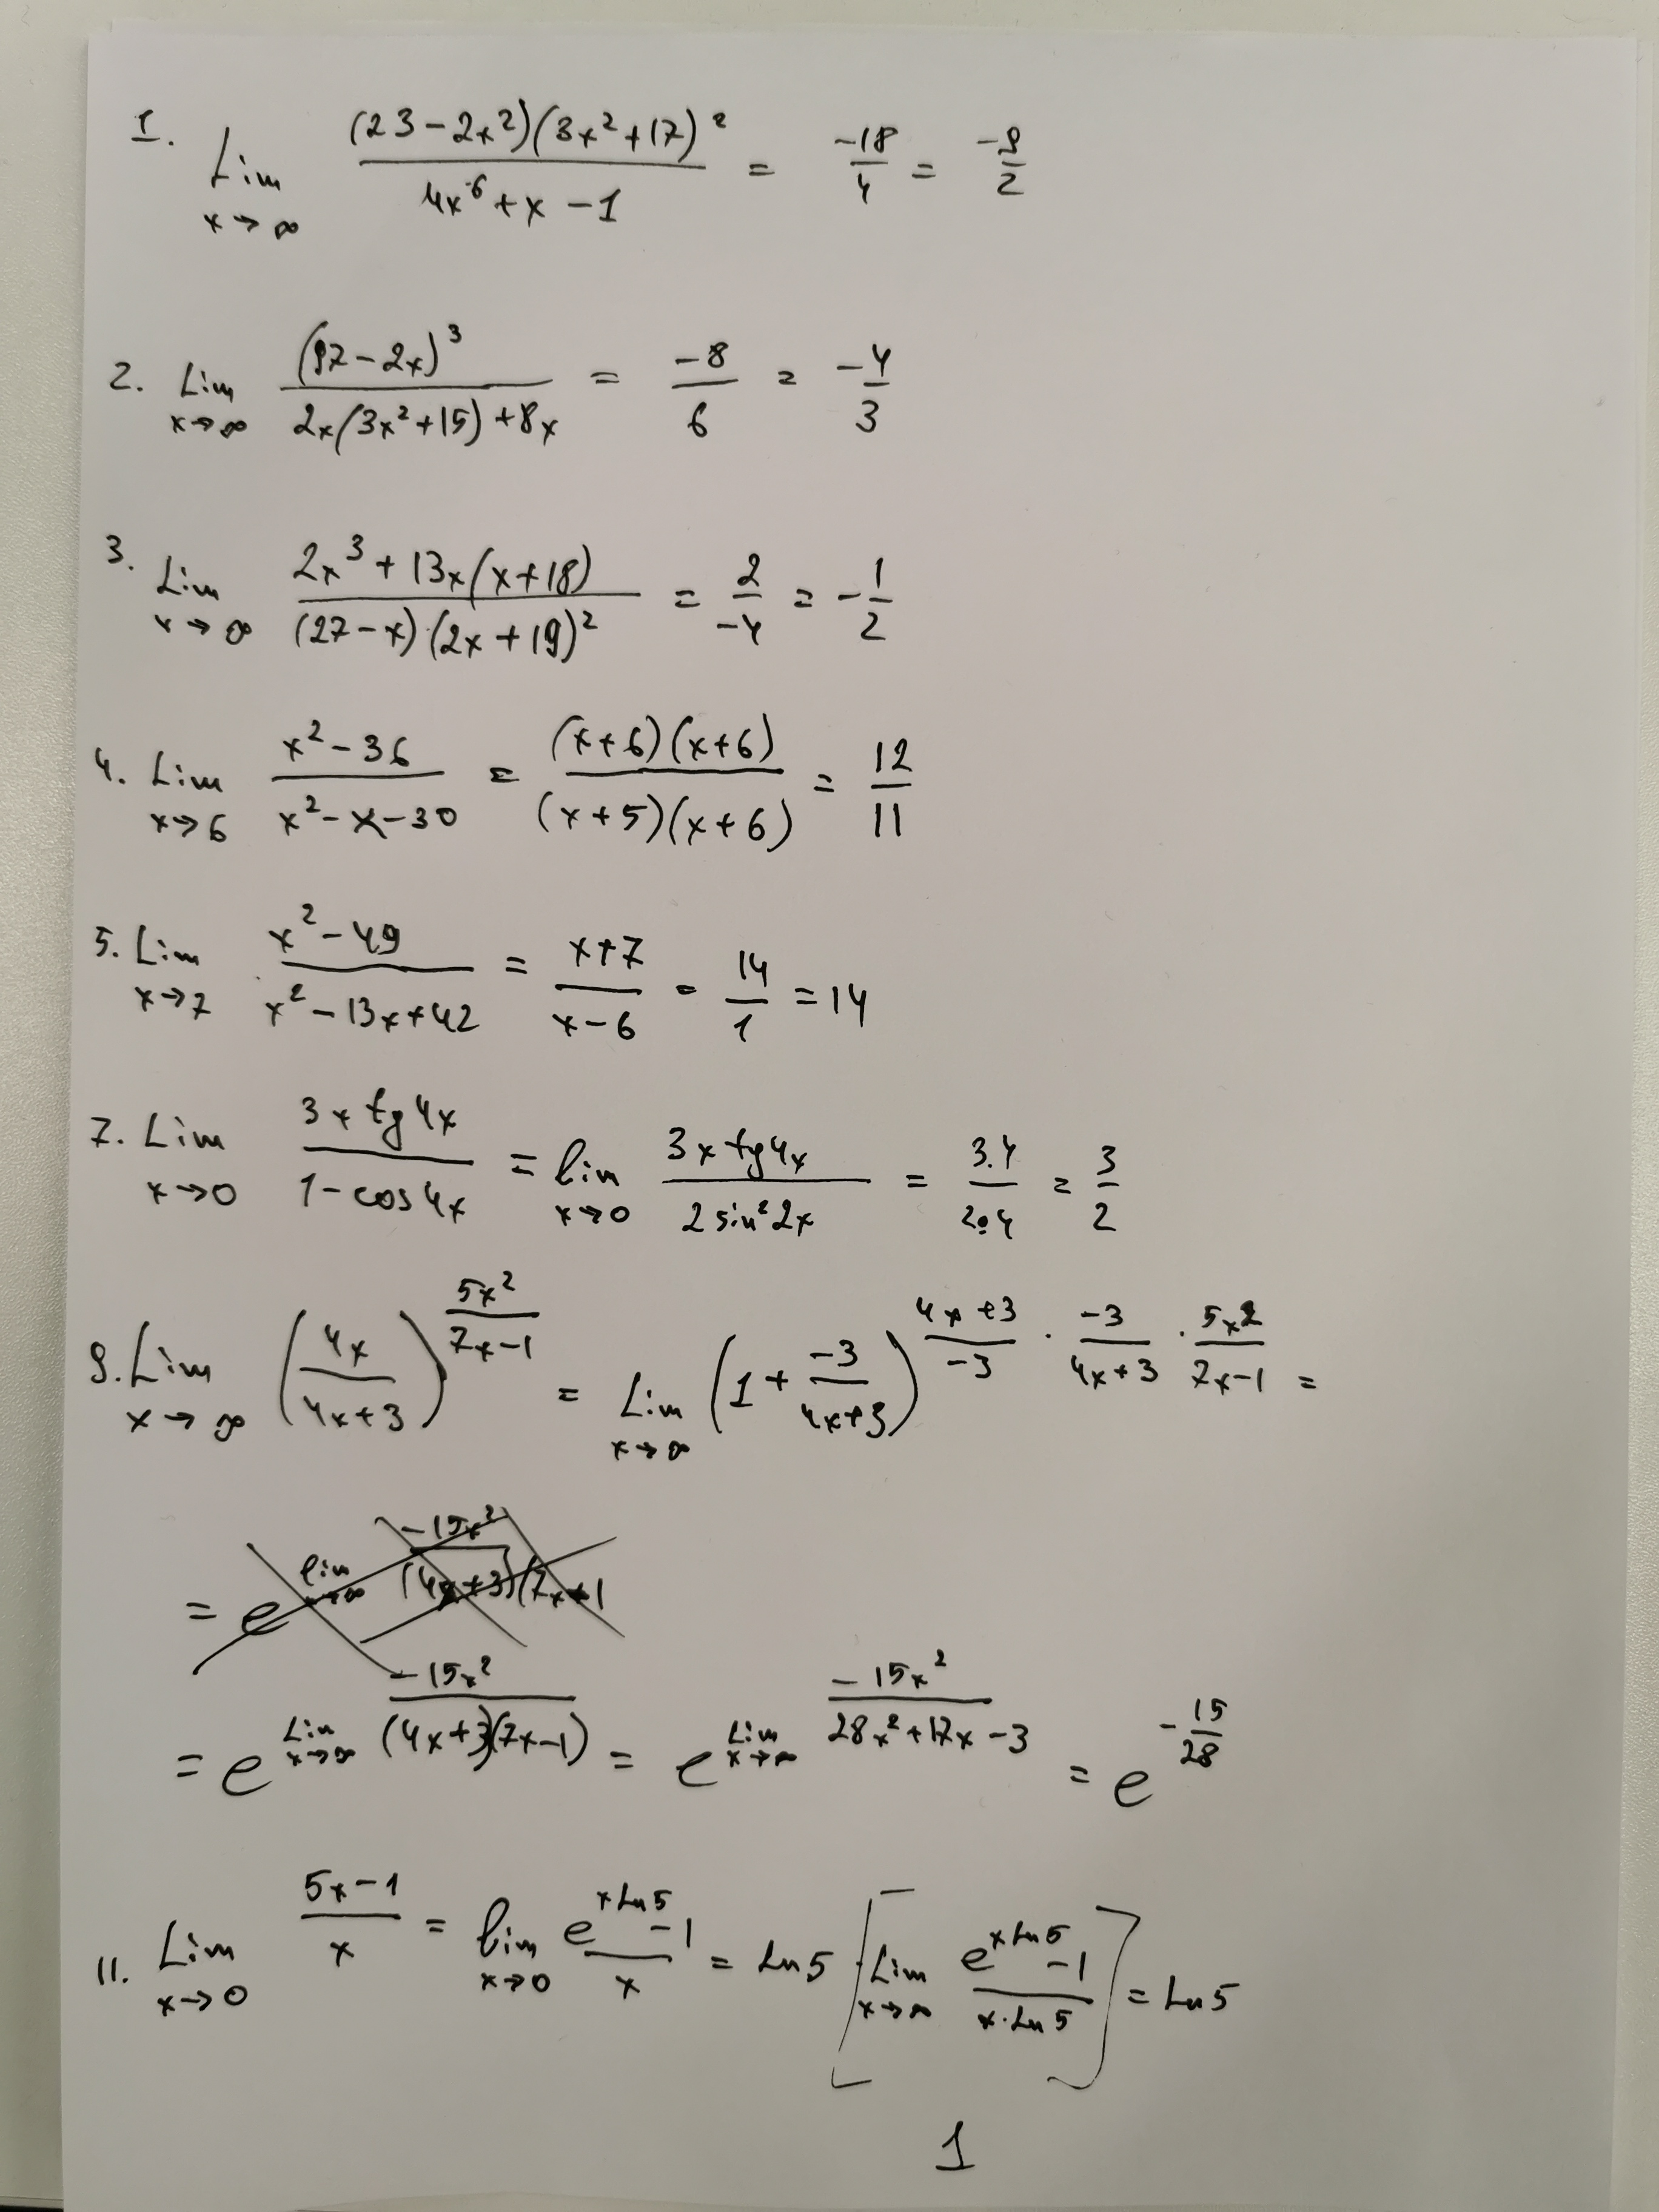 1. Lim x→∞ (23-2x²)(3x²+17)² / 4x⁶+x-1 = -18/4 = -9/2
2. Lim x→∞ (97-2x)³ / 2x(3x²+15)+8x = -8/6 = -4/3
3. Lim x→∞ 2x³+13x(x+18) / (27-x)·(2x+19)² = 2/-4 = -1/2
4. Lim x→6 x²-36 / x²-x-30 = (x+6)(x+6) / (x+5)(x+6) = 12/11
5. Lim x→7 x²-49 / x²-13x+42 = x+7 / x-6 = 14/1 = 14
7. Lim x→0 3x tg4x / 1-cos4x = lim x→0 3x tg4x / 2sin²2x = 3.4/2.4 = 3/2
9. Lim x→∞ (4x / 4x+3)^(5x² / 7x-1) = Lim x→∞ (1 + -3 / 4x+3)^(4x+3 / -3 · -3 / 4x+3 · 5x² / 7x-1) =
= e^(lim x→∞ -15x² / (4x+3)(7x+1)
= e^(Lim x→∞ -15x² / (4x+3)(7x-1)) = e^(Lim x→∞ -15x² / 28x²+17x-3) = e^(-15/28)
11. Lim x→0 5x-1 / x = lim x→0 e^(x Ln5)-1 / x = Ln5 · [Lim x→∞ e^(x Ln5)-1 / x·Ln5] = Ln5
1